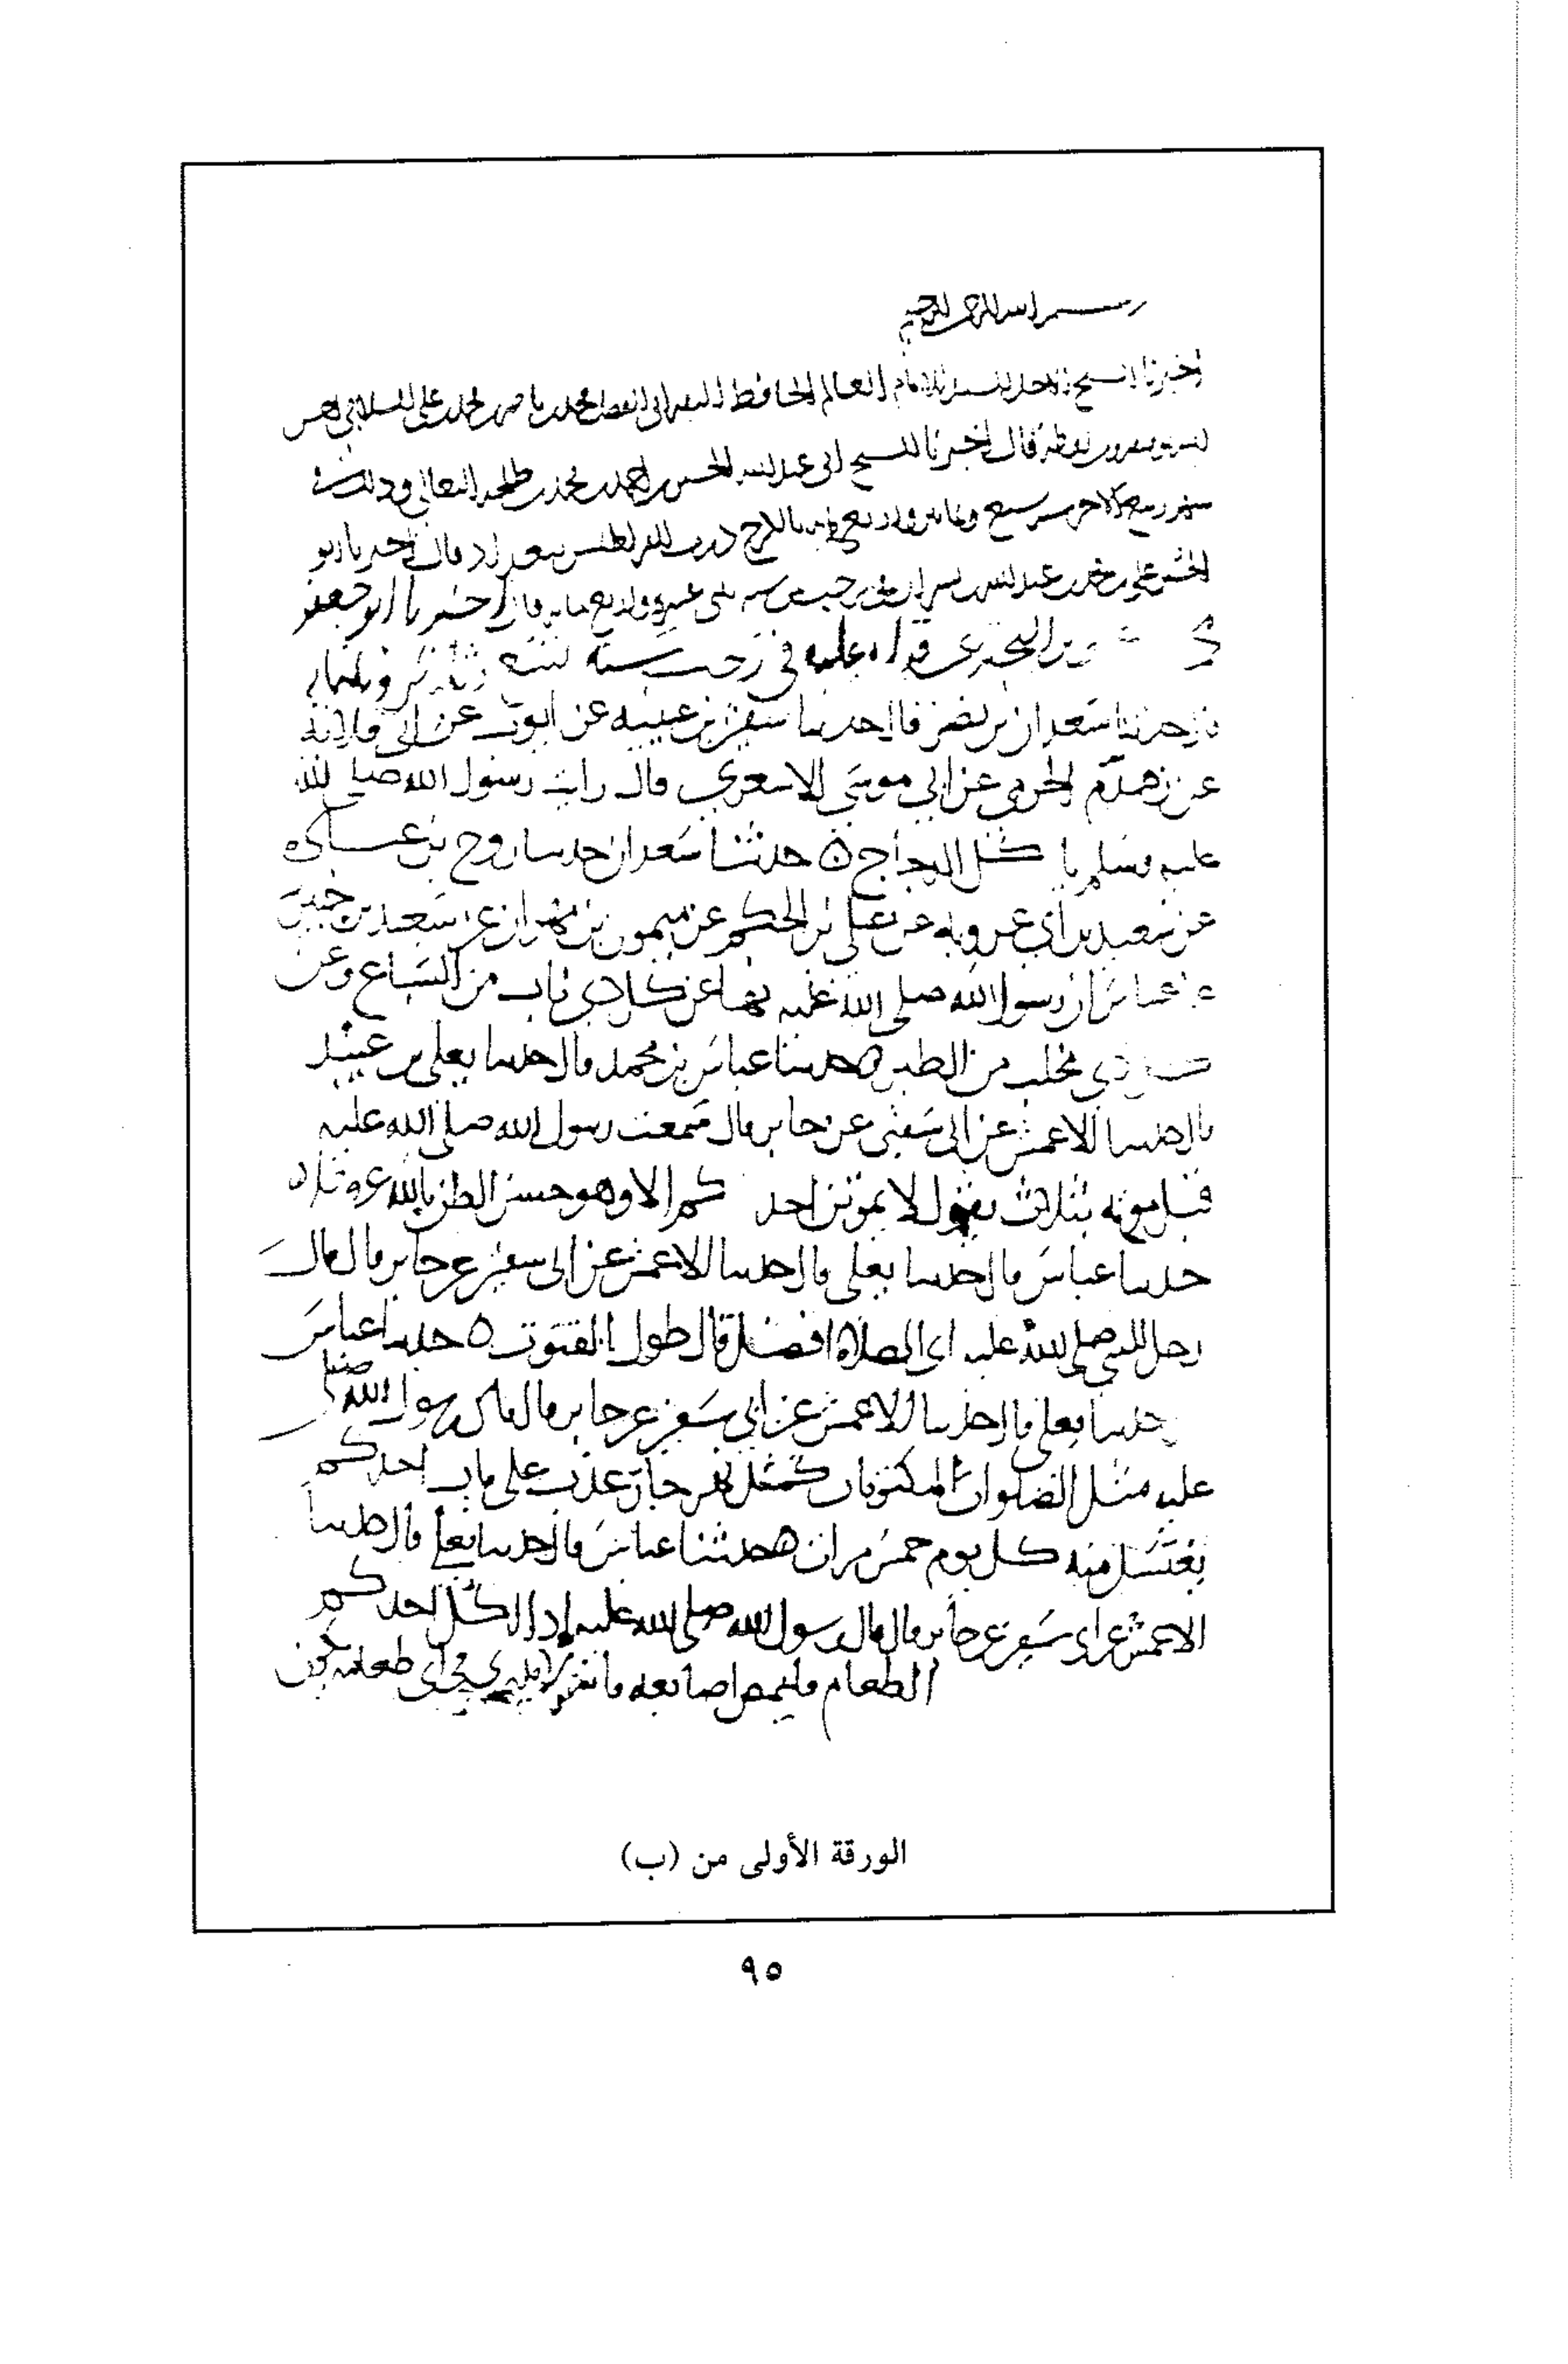 بسم الله الرحمن الرحيم
اخبرنا الشيخ الاجل السيد الامام العالم الحافظ ابى الفضل محمد بن ناصر بن محمد بن على السلامى
قال اخبرنا الشيخ ابى عبد الله الحسين بن احمد بن محمد بن طلحه النعالى وذلك فى
شهر ربيع الاخر سنه سبع وثمانين واربع مايه بالكرخ درب ببغداد قال اخبرنا ابو
الحسين على بن محمد بن عبد الله بن بشران فى رجب من سنه اثنى عشره واربع مايه قال اخبرنا ابو جعفر
محمد بن عمرو بن البخترى قراءه عليه فى رجب سنه تسعه وثلثين وثلثمايه
حدثنا سعدان بن نصر قال حدثنا سفين بن عيينه عن ايوب عن ابى قلابه
عن زهدم الجرمى عن ابي موسى الاشعري قال رايت رسول الله صلى الله
عليه وسلم يا كل الدجاج ه حدثنا سعدان حدثنا روح بن عباده
عن سعيد بن أبي عروبه عن على بن الحكم عن ميمون بن مهران عن سعيد بن جبير
عن ابن عباس ان رسول الله صلى الله عليه نها عن كل ذى ناب من السباع وعن
كل ذي مخلب من الطير ه حدثنا عباس بن محمد قال حدثنا يعلى بن عبيد
قال حدثنا الاعمش عن ابى سفين عن جابر قال سمعت رسول الله صلى الله عليه
قبل موته بثلاث يقول لا يموتن احد كم الا وهو حسن الظن بالله عز وجل ه
حدثنا عباس قال حدثنا يعلى قال حدثنا الاعمش عن ابى سفين عن جابر قال قال
رجل للنبى صلى الله عليه اى الصلاة افضل قال طول القنوت ه حدثنا عباس
حدثنا يعلى قال حدثنا الاعمش عن ابي سفين عن جابر قال قال رسول الله صلى الله
عليه مثل الصلوات المكتوبات كمثل نهر جار عذب على باب احدكم
يغتسل منه كل يوم خمس مرات ه حدثنا عباس قال حدثنا يعلى قال حدثنا
الاعمش عن ابى سفين عن جابر قال قال رسول الله صلى الله عليه اذا اكل احدكم
الطعام فليمص اصابعه فانه لا يدرى فى اى طعامه تكون
الورقة الأولى من (ب)
٩٥